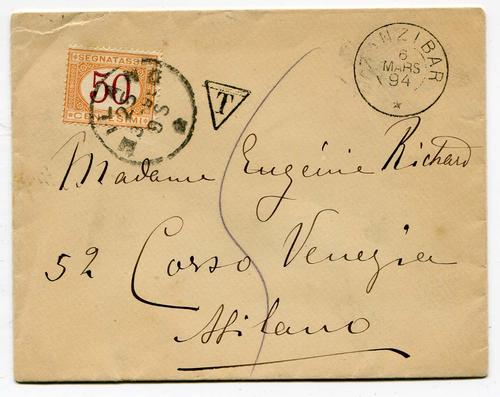 SEGNATASSE
50
CENTESIMI
MILANO
T
ZANZIBAR
6
MARS
94
Madame Eugénie Richard
52 Corso Venezia
Milano